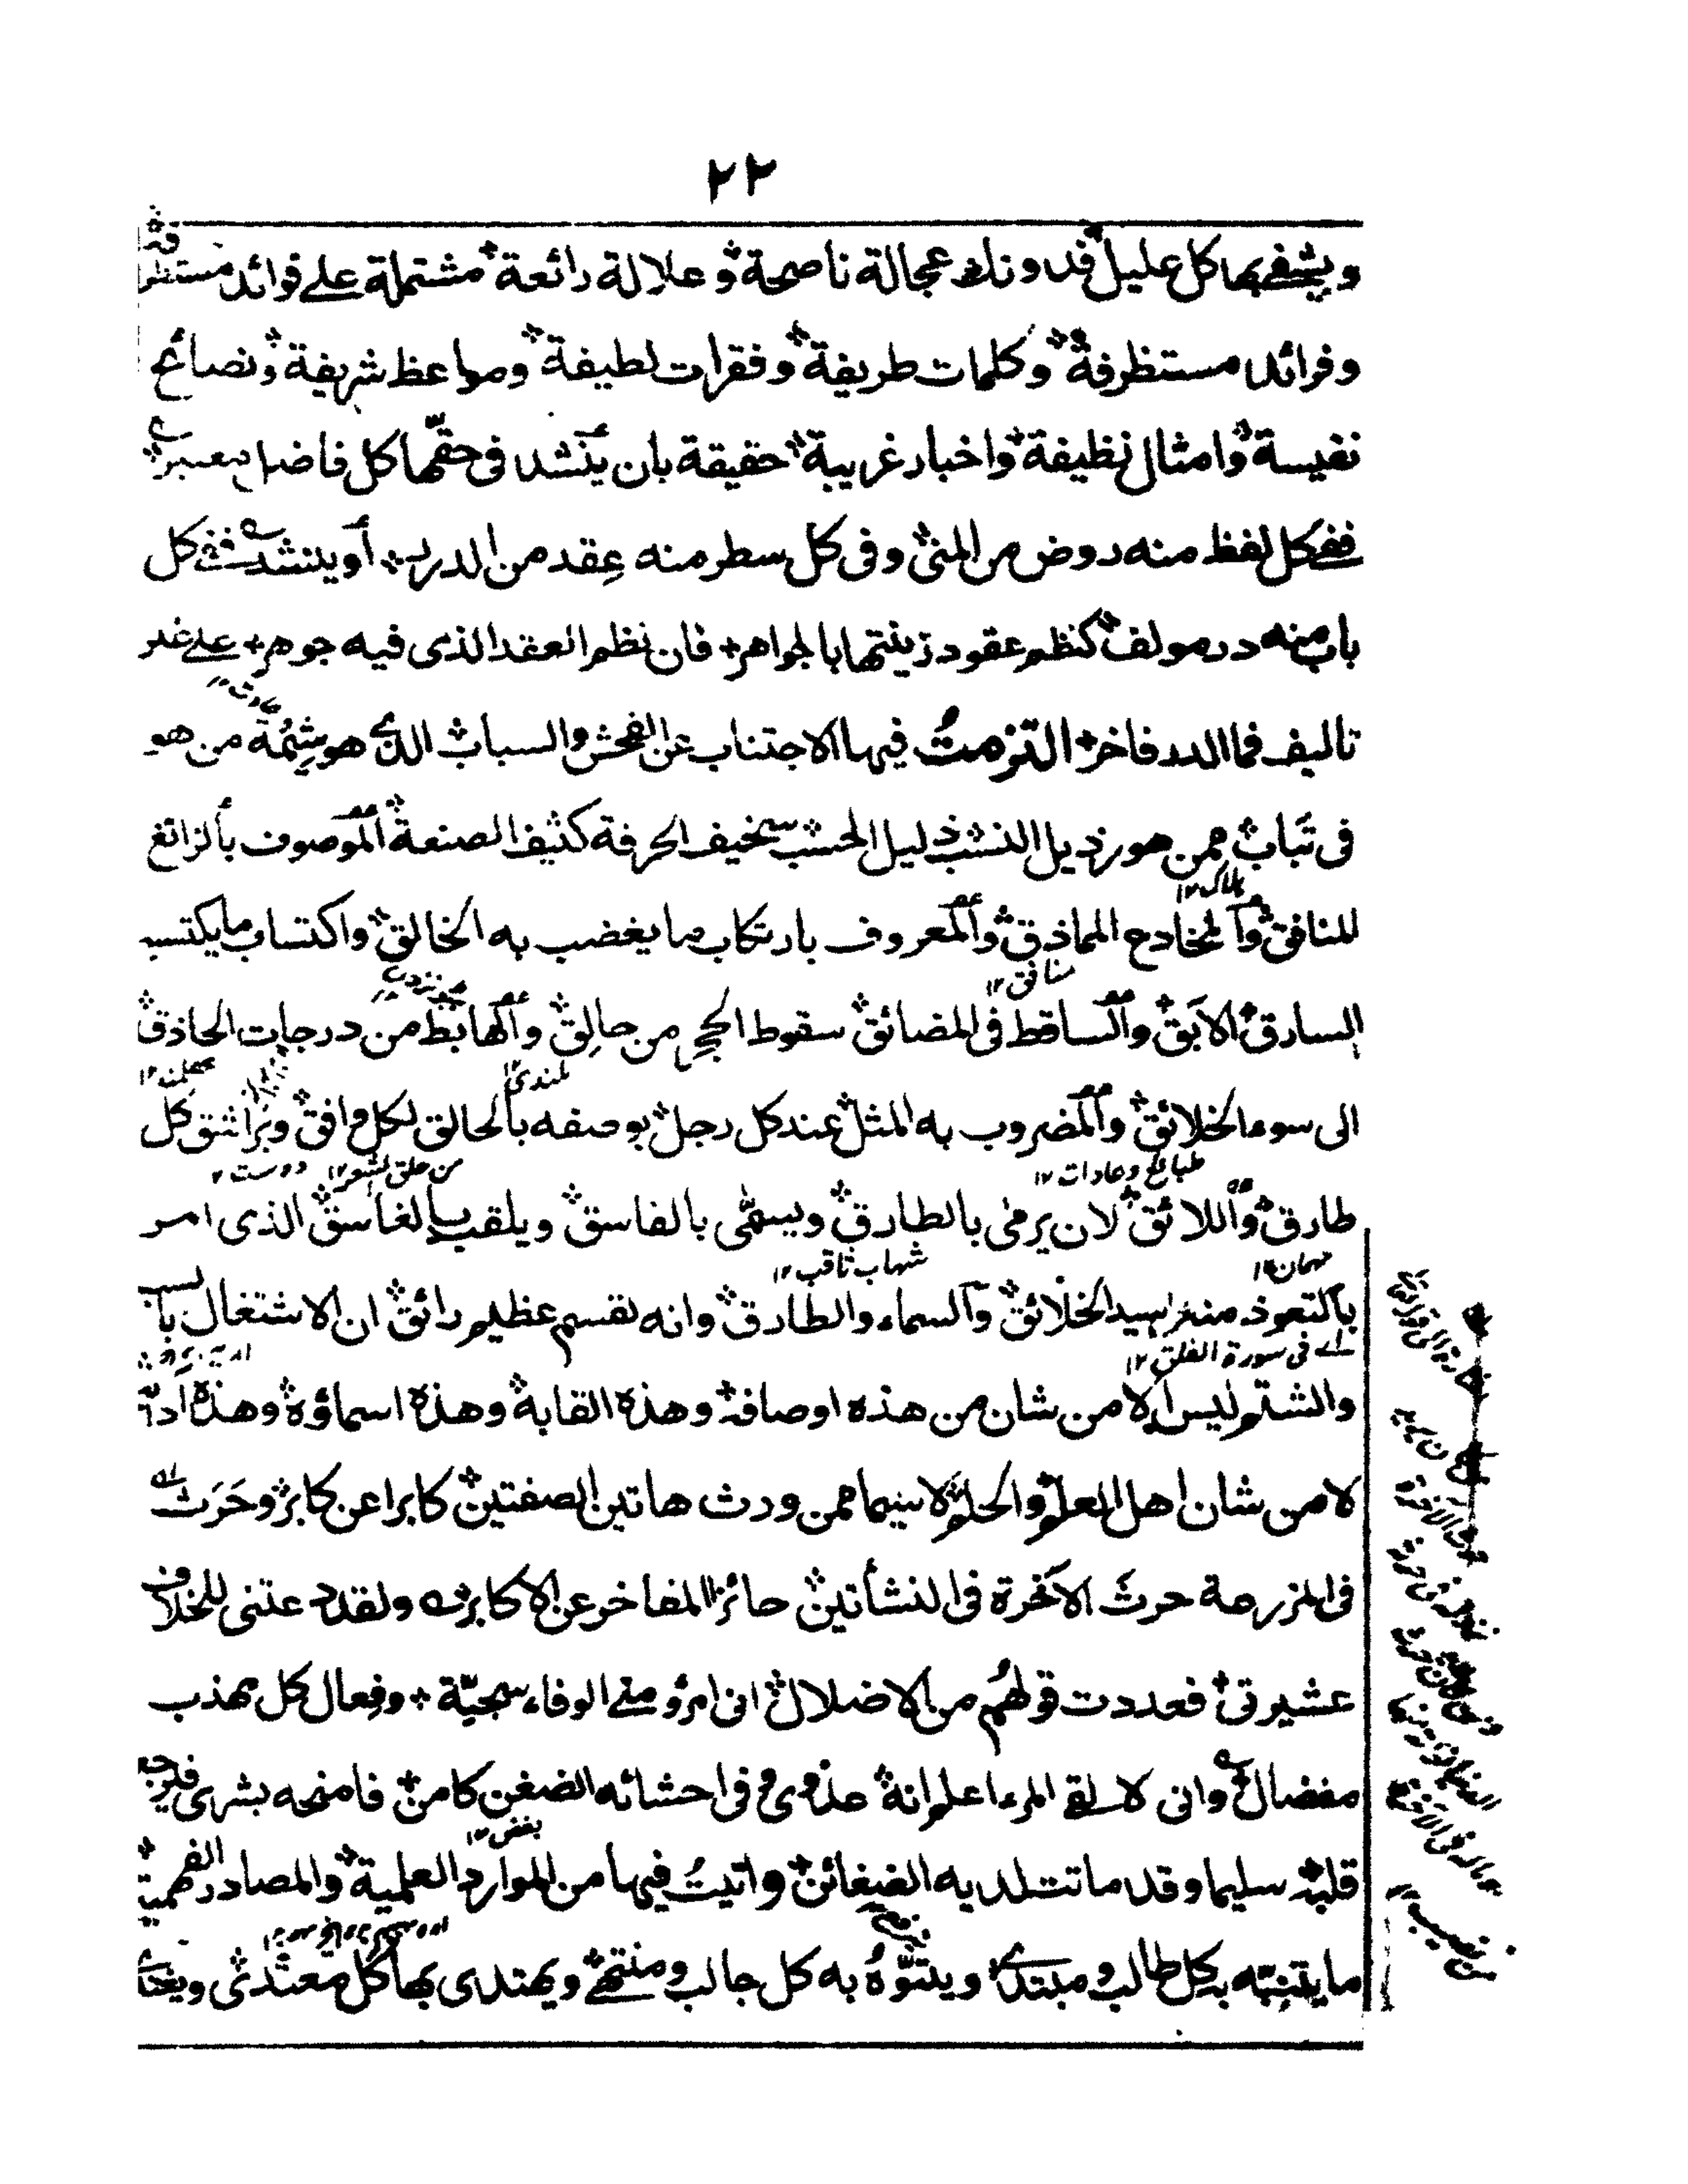 ٢٢
ويشفى بها كل عليل فدونك عجالة ناصحة وعلالة رائعة مشتملة على فوائد
وفرائد مستظرفة وكلمات طريفة وفقرات لطيفة ومواعظ شريفة ونصائح
نفيسة وامثال نظيفة واخبار غريبة حقيقة بان ينشد فى حقّها كل فاضل
ففى كل لفظ منه روض من المنى وفى كل سطر منه عِقد من الدرر أو ينشد ففى كل
باب منه در مولف كنظم عقود زينتها الجواهر فان نظم العقد الذى فيه جوهر على غير
تاليف فما الدر فاخر التزمتُ فيها الاجتناب عن الفحش والسباب الذى هو شِيْمَة من هو
فى تَباب ممن هو رذيل النسب ذليل الحسب سخيف الحرفة كثيف الصنعة الموصوف بالزائغ
هلاك ١٢
المنافق والمخادع المماذق والمعروف بارتكاب ما يغضب به الخالق واكتساب ما يكتسب
منافق ١٢
السارق الآبق والساقط فى المضائق سقوط الحجر من حالِق والهابط من درجات الحاذق
بلندى ١٢
الى سوء الخلائق والمضروب به المثل عند كل رجل بوصفه بالحالق لكل وافق كل
طبائع وعادات ١٢ من حلق الشعر ١٢ دوست ١٢
طارق واللائق لان يرمى بالطارق ويسمّى بالفاسق ويلقب بالغاسق الذى امر
مهمان ١٢ شهاب ثاقب ١٢
بالتعوذ منه سيد الخلائق والسماء والطارق وانه لقسم عظيم رائق ان الاشتغال بالسب
اے فى سورة الفلق ١٢
والشتم ليس الا من شان من هذه اوصافه وهذه القابه وهذه اسماؤه وهذه
لا من شان اهل العلم والحلم لا سيما ممن ورث هاتين الصفتين كابرا عن كابر وحَرَث
فى المزرعة حرث الآخرة فى النشأتين حائز المفاخر عن الاكابر ولقد دعتنى للخلاف
عشيرتى فعددت قولهم من الاضلال انى امرؤ منى الوفاء سجيّة وفِعال كل مهذب
مفضال وانى لالقى المرء اعلم انه عدوى وفى احشائه الضغن كامن فامنحه بشرى
بغض ١٢
قلبه سليما وقد ماتت لديه الضغائن واتيتُ فيها من الموارد العلمية والمصادر الفهمية
ما يتنبّه به كل طالب ومبتدى ويتنوّهُ به كل جالب ومنتهى ويهتدى بها كل معتدى